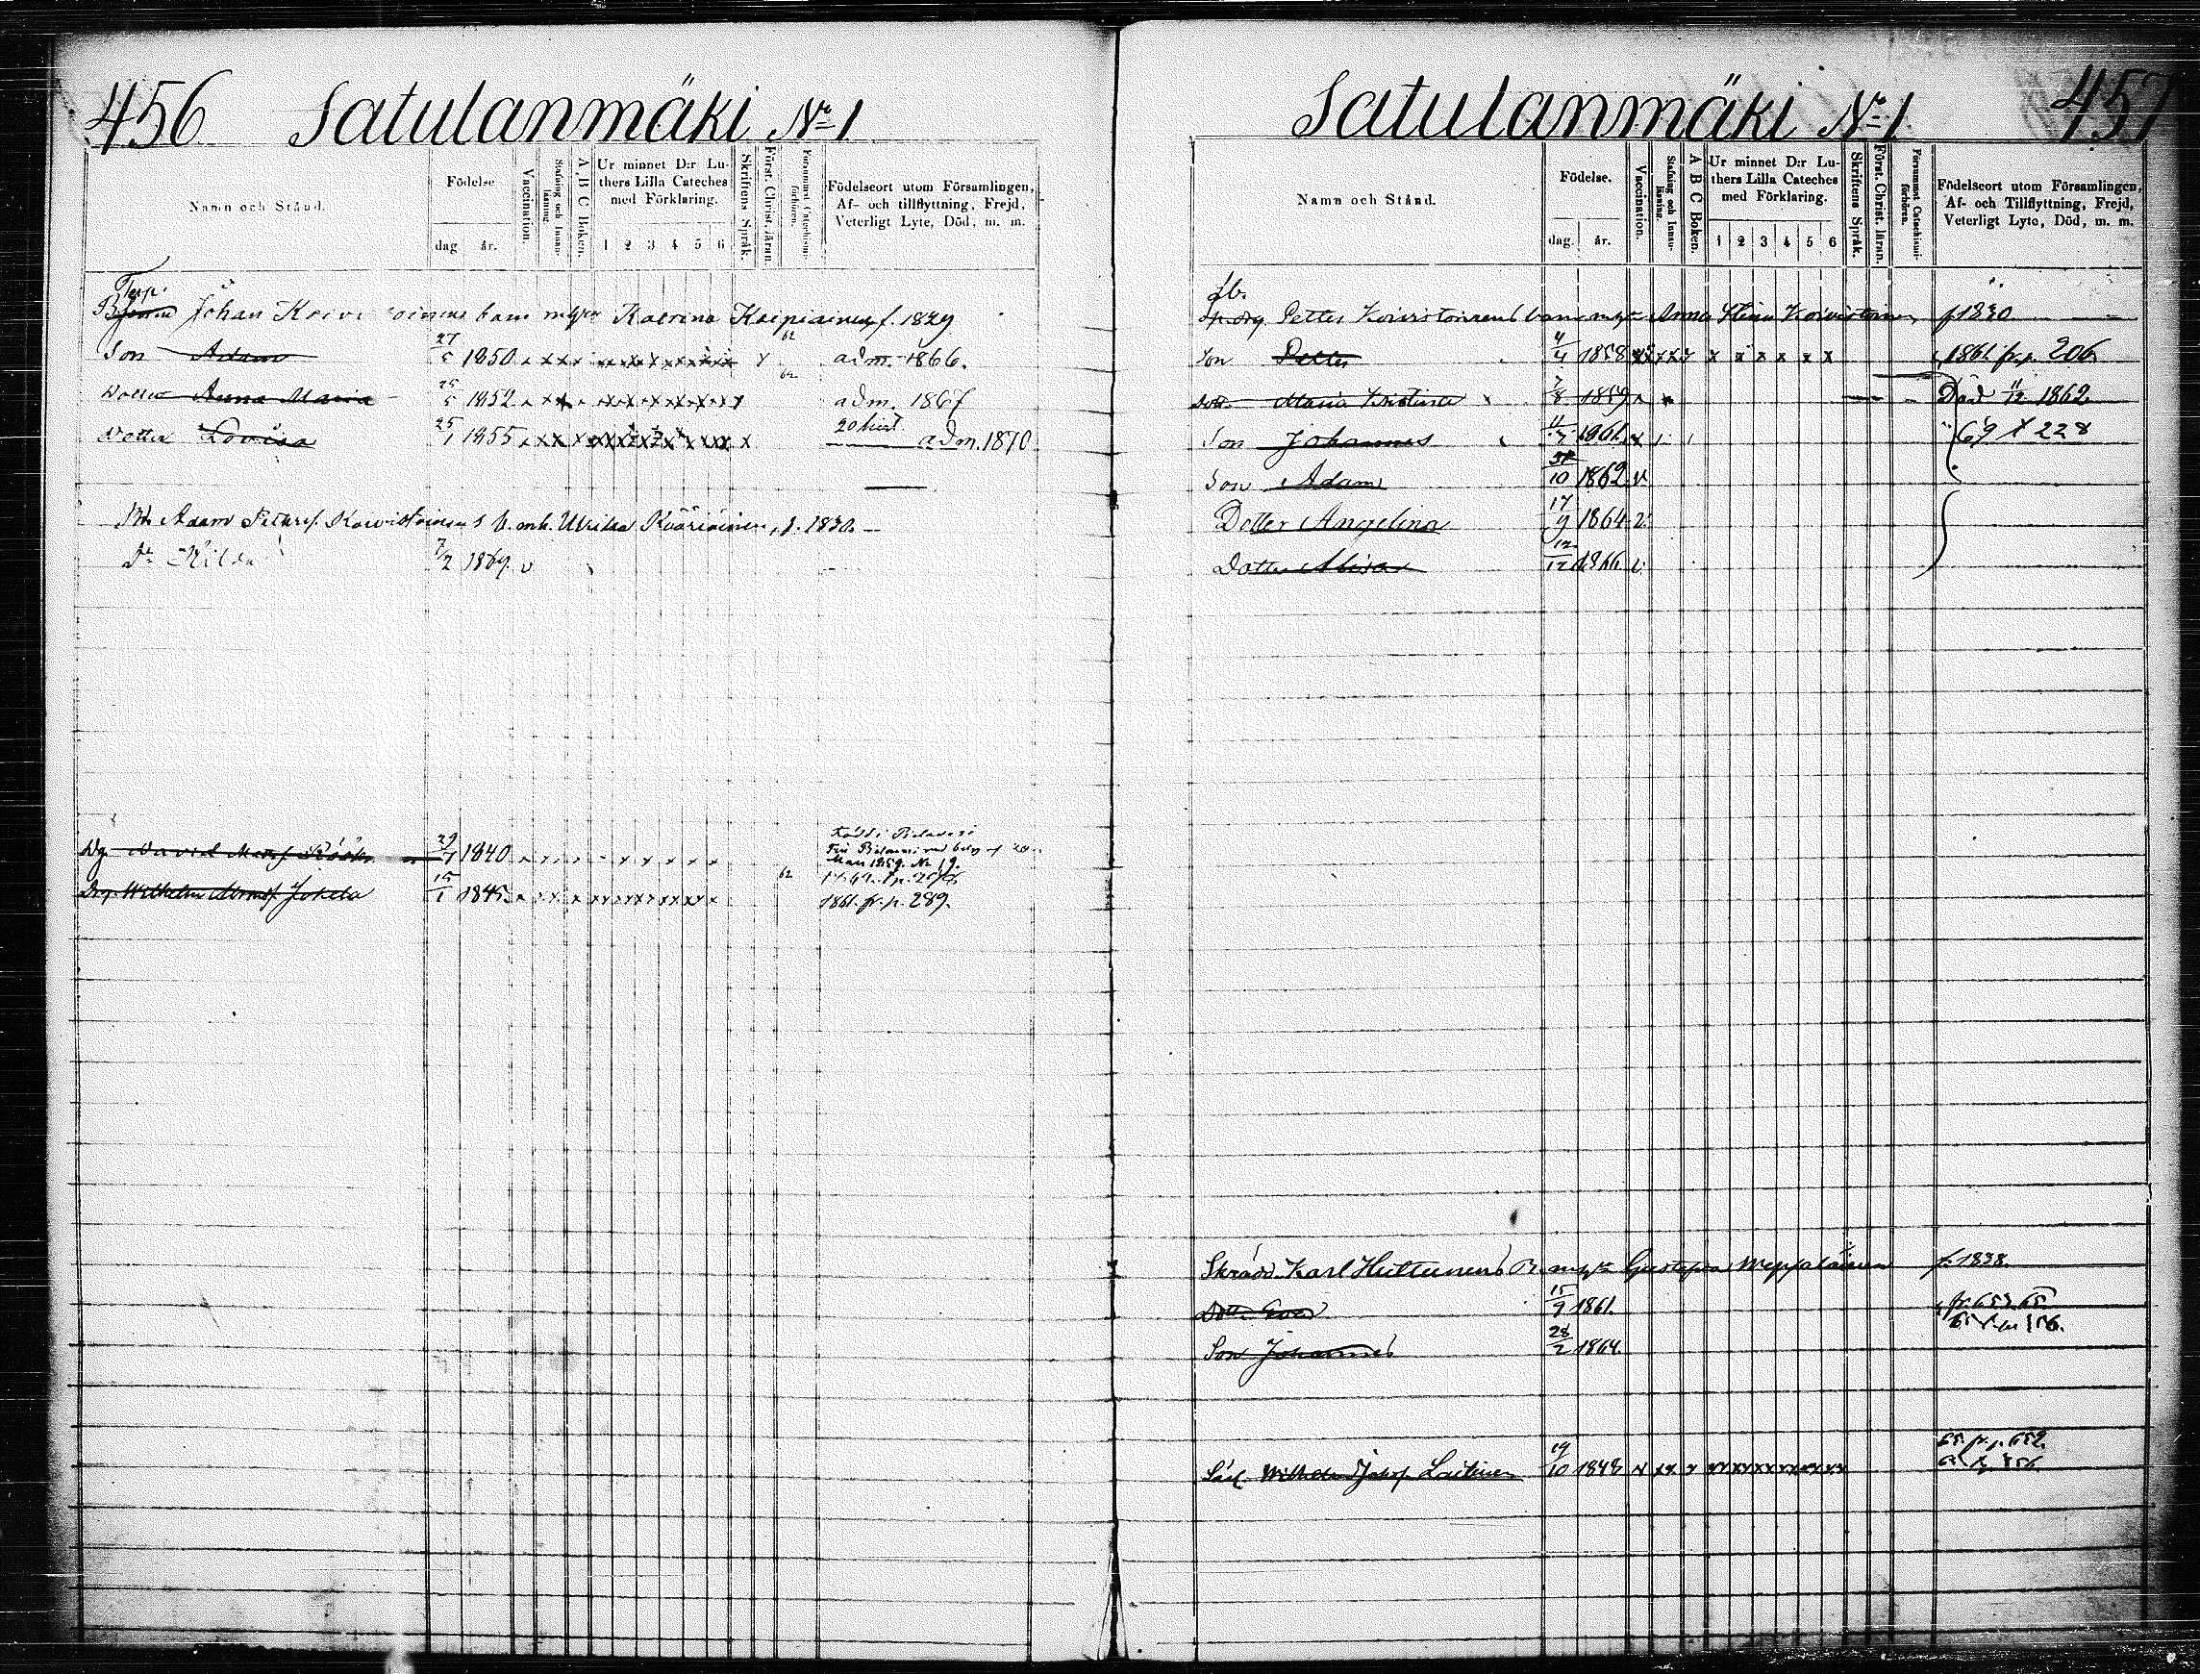 456 Satulanmäki № 1
Namn och Stånd.
Födelse
dag. år.
Vaccination.
Stafning och Innanläsning.
A B C Boken.
Ur minnet D:r Luthers Lilla Cateches med Förklaring.
1 2 3 4 5 6
Skriftens Språk.
Först. Christ. läran.
Försummat Catechismiförhören.
Födelseort utom Församlingen, Af- och tillflyttning, Frejd, Veterligt Lyte, Död, m. m.
Torp.
Johan Koivistoinens barn m. Katrina Kaipiainen f. 1829
Son Adam 27/5 1850 adm. 1866.
62
Dotter Anna Maria 25/5 1852 adm. 1867
62
Dotter Lovisa 25/1 1855 adm. 1870
Adam Petters. Koivistoinens b. m. h. Ulrika Kääriäinen, f. 1830.
Dr Hilda 7/2 1869
Dg David Mats. 29/7 1840
Född i Pielavesi
Mars 1859. No 19.
Drg. Wilhelm Jokela 15/1 1845 1861. fr. p. 289.
62
Satulanmäki № 1 457
Namn och Stånd.
Födelse.
dag. år.
Vaccination.
Stafning och Innanläsning.
A B C Boken.
Ur minnet D:r Luthers Lilla Cateches med Förklaring.
1 2 3 4 5 6
Skriftens Språk.
Först. Christ. läran.
Försummat Catechismiförhören.
Födelseort utom Församlingen, Af- och Tillflyttning, Frejd, Veterligt Lyte, Död, m. m.
Petter Koivistoinens barn m. Anna Stina Koivistoinen f 1830
Son Petter 4/4 1858 1861. fr. p. 206
Dott. Maria Kristina 7/8 1859 Död 11/12 1862
Son Johannes 1861 69 228
Son Adam 31/10 1862
Dotter Angelina 17/9 1864
Dotter 12/12 1866
Skrädd. Karl Huttunens B. m. Gustafva f. 1838.
Dott. Eva 15/9 1861.
Son Johannes 28/2 1864.
Wilhelm Laitinen 19/10 1848
65 fr. p. 652.